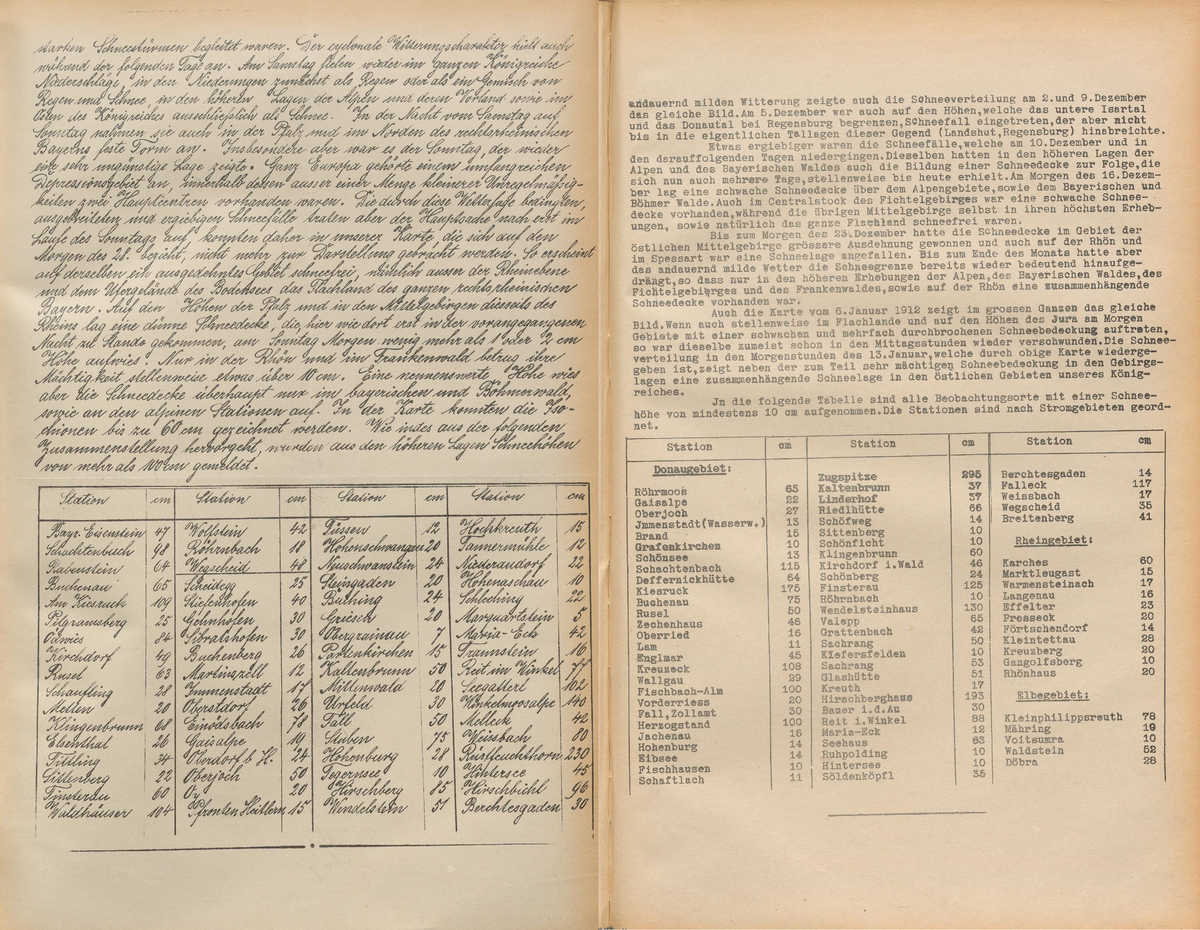 starken Schneestürmen begleitet waren. Der cyclonale Witterungscharakter hielt auch
während der folgenden Tage an. Am Samstag fielen wieder im ganzen Königreiche
Niederschläge, in den Niederungen zunächst als Regen oder als ein Gemisch von
Regen und Schnee, in den höheren Lagen der Alpen und deren Vorland sowie im
Osten des Königreiches ausschliesslich als Schnee. In der Nacht vom Samstag auf
Sonntag nahmen sie auch in der Pfalz und im Norden des rechtsrheinischen
Bayerns feste Form an. Insbesondere aber war es der Sonntag, der wieder
eine sehr ungünstige Lage zeigte. Ganz Europa gehörte einem umfangreichen
Depressionsgebiet an, innerhalb dessen ausser einer Menge kleinerer Unregelmäßig-
keiten zwei Hauptcentren vorhanden waren. Die durch diese Wetterlage bedingten,
ausgebreiteten und ergiebigen Schneefälle traten aber der Hauptsache nach erst im
Laufe des Sonntags auf, konnten daher in unserer Karte, die sich auf den
Morgen des 28. bezieht, nicht mehr zur Darstellung gebracht werden. So erscheint
auf derselben ein ausgedehntes Gebiet schneefrei, nämlich ausser der Rheinebene
und dem Ufergelände des Bodensees das Flachland des ganzen rechtsrheinischen
Bayern. Auf den Höhen der Pfalz und in den Mittelgebirgen diesseits des
Rheins lag eine dünne Schneedecke, die, hier wie dort erst in der vorangegangenen
Nacht zu Stande gekommen, am Sonntag Morgen wenig mehr als 1 oder 2 cm
Höhe aufwies. Nur in der Rhön und im Frankenwald betrug ihre
Mächtigkeit stellenweise etwas über 10 cm. Eine nennenswerte Höhe wies
aber die Schneedecke überhaupt nur im bayerischen und Böhmerwald,
sowie an den alpinen Stationen auf. In der Karte konnten die Iso-
chionen bis zu 60 cm gezeichnet werden. Wie indes aus der folgenden
Zusammenstellung hervorgeht, wurden aus den höheren Lagen Schneehöhen
von mehr als 100 cm gemeldet.
Station cm Station cm Station cm Station cm
Bayr. Eisenstein 47 Wolfstein 42 Füssen 12 Hochkreuth 15
Schachtenbach 98 Röhrnbach 18 Hohenschwangau 20 Tannermühle 12
Rabenstein 64 Wegscheid 48 Neuschwanstein 24 Niederaudorf 22
Buchenau 65 Scheidegg 25 Steingaden 20 Hohenaschau 10
Am Kiesruck 109 Stiefenhofen 40 Bathing 24 Schleching 22
Pilgramsberg 25 Gehnhofen 30 Griesen 20 Marquartstein 5
Ödwies 84 Sibratshofen 30 Obergrainau 7 Maria-Eck 42
Kirchdorf 49 Buchenberg 26 Partenkirchen 15 Traunstein 16
Rusel 63 Martinszell 12 Kaltenbrunn 50 Reit im Winkel 77
Schaufling 28 Immenstadt 17 Mittenwald 20 Seegatterl 102
Metten 20 Oberstdorf 26 Urfeld 30 Winkelmosalpe 140
Klingenbrunn 68 Einödsbach 78 Fall 50 Melleck 42
Ebenthal 26 Gaisalpe 19 Stuben 75 Weissbach 80
Tittling 34 Oberdorf b. H. 24 Hohenburg 28 Rünstfeuchthorn 230
Sittenberg 22 Oberjoch 50 Tegernsee 10 Hintersee 45
Finsterau 60 Oy 20 Hirschberg 85 Hirschbichl 96
Waldhäuser 104 Pfronten Heitlern 15 Wendelstein 51 Berchtesgaden 30
andauernd milden Witterung zeigte auch die Schneeverteilung am 2.und 9.Dezember
das gleiche Bild.Am 6.Dezember war auch auf den Höhen,welche das untere Isartal
und das Donautal bei Regensburg begrenzen,Schneefall eingetreten,der aber nicht
bis in die eigentlichen Tallagen dieser Gegend (Landshut,Regensburg) hinabreichte.
Etwas ergiebiger waren die Schneefälle,welche am 10.Dezember und in
den darauffolgenden Tagen niedergingen.Dieselben hatten in den höheren Lagen der
Alpen und des Bayerischen Waldes auch die Bildung einer Schneedecke zur Folge,die
sich nun auch mehrere Tage,stellenweise bis heute erhielt.Am Morgen des 16.Dezem-
ber lag eine schwache Schneedecke über dem Alpengebiete,sowie dem Bayerischen und
Böhmer Walde.Auch im Centralstock des Fichtelgebirges war eine schwache Schnee-
decke vorhanden,während die übrigen Mittelgebirge selbst in ihren höchsten Erheb-
ungen, sowie natürlich das ganze Flachland schneefrei waren.
Bis zum Morgen des 23.Dezember hatte die Schneedecke im Gebiet der
östlichen Mittelgebirge grössere Ausdehnung gewonnen und auch auf der Rhön und
im Spessart war eine Schneelage angefallen. Bis zum Ende des Monats hatte aber
das andauernd milde Wetter die Schneegrenze bereits wieder bedeutend hinaufge-
drängt,so dass nur in den höheren Erhebungen der Alpen,des Bayerischen Waldes,des
Fichtelgebirges und des Frankenwaldes,sowie auf der Rhön eine zusammenhängende
Schneedecke vorhanden war.
Auch die Karte vom 6.Januar 1912 zeigt im grossen Ganzen das gleiche
Bild.Wenn auch stellenweise im Flachlande und auf den Höhen des Jura am Morgen
Gebiete mit einer schwachen und mehrfach durchbrochenen Schneebedeckung auftreten,
so war dieselbe zumeist schon in den Mittagsstunden wieder verschwunden.Die Schnee-
verteilung in den Morgenstunden des 13.Januar,welche durch obige Karte wiederge-
geben ist,zeigt neben der zum Teil sehr mächtigen Schneebedeckung in den Gebirgs-
lagen eine zusammenhängende Schneelage in den östlichen Gebieten unseres König-
reiches.
Jn die folgende Tabelle sind alle Beobachtungsorte mit einer Schnee-
höhe von mindestens 10 cm aufgenommen.Die Stationen sind nach Stromgebieten geord-
net.
Station cm Station cm Station cm
Donaugebiet:
Röhrmoos 63
Gaisalpe 22
Oberjoch 27
Jmmenstadt(Wasserw.) 13
Brand 15
Grafenkirchen 10
Schönsee 13
Schachtenbach 115
Deffernickhütte 64
Kiesruck 175
Buchenau 75
Rusel 50
Zechenhaus 46
Oberried 16
Lam 11
Englmar 45
Kreuzeck 108
Wallgau 29
Fischbach-Alm 100
Vorderriess 20
Fall,Zollamt 30
Herzogstand 100
Jachenau 16
Hohenburg 14
Eibsee 11
Fischhausen 10
Schaftlach 11
Zugspitze 295
Kaltenbrunn 37
Linderhof 37
Riedlhütte 66
Schöfweg 14
Sittenberg 10
Schönficht 10
Klingenbrunn 60
Kirchdorf i.Wald 46
Schönberg 24
Finsterau 125
Röhrnbach 10
Wendelsteinhaus 130
Valepp 65
Grattenbach 42
Sachrang 50
Kiefersfelden 10
Sachrang 53
Glashütte 51
Kreuth 17
Hirschberghaus 193
Bauer i.d.Au 30
Reit i.Winkel 88
Maria-Eck 12
Seehaus 63
Ruhpolding 10
Hintersee 10
Söldenköpfl 35
Berchtesgaden 14
Falleck 117
Weissbach 17
Wegscheid 35
Breitenberg 41
Rheingebiet:
Karches 60
Marktleugast 15
Warmensteinach 17
Langenau 16
Effelter 23
Presseck 20
Förtschendorf 14
Kleintettau 28
Kreuzberg 10
Gangolfsberg 10
Rhönhaus 20
Elbegebiet:
Kleinphilippsreuth 78
Mähring 10
Voitsumra 10
Waldstein 52
Döbra 28